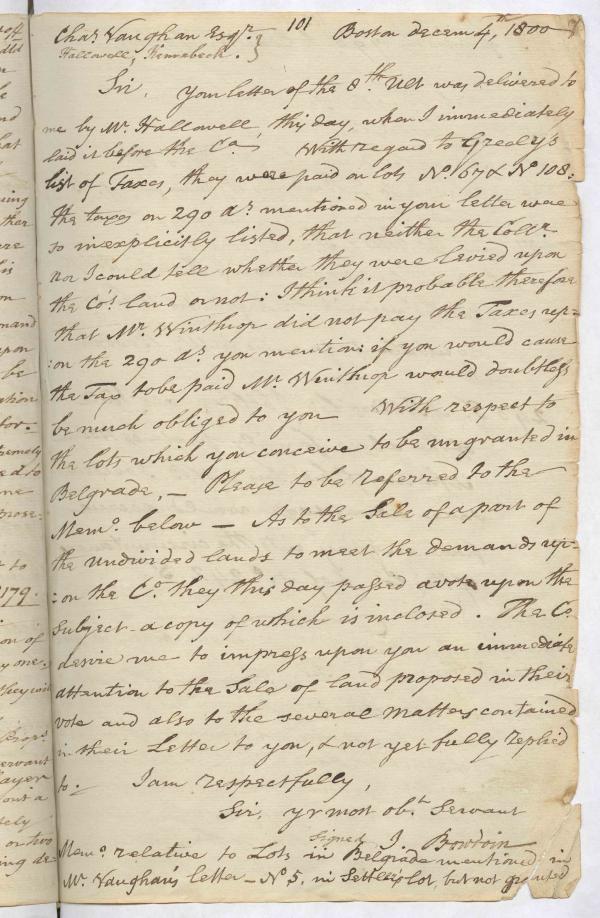 101
Chas Vaughan Esqr. } Boston decem 4th, 1800
Hallowell, Kennebeck. }
Sir, your letter of the 8th Ult was delivered to
me by Mr. Hallowell, this day, when I immediately
laid it before the Co. With regard to Greely's
list of Taxes, they were paid on lots No. 67 & No 108:
the taxes on 290 As mentioned in your letter were
so inexplicitly listed, that neither the Collr.
nor I could tell whether they were levied upon
the Co's land or not: I think it probable therefore
that Mr. Winthrop did not pay the Taxes up=
:on the 290 As you mention: if you would cause
the Tax to be paid Mr. Winthrop would doubtless
be much obliged to you With respect to
the lots which you conceive to be ungranted in
Belgrade, — Please to be referred to the
Memo. below — As to the Sale of a part of
the undivided lands to meet the demands up=
:on the Co. they this day passed a vote upon the
subject a copy of which is inclosed. The Co.
desire me to impress upon you an immediate
attention to the Sale of land proposed in their
vote and also to the several matters contained
in their Letter to you, & not yet fully replied
to. I am respectfully,
Sir, yr most obt. Servant
Signed J Bowdoin
Memo. relative to Lots in Belgrade mentioned in
Mr. Vaughan's letter — No 5. in Settler's lot, but not granted
ning
ther
his
mand
upon
be
for.
me
to
179.
of
y one.
servant
out a
or two